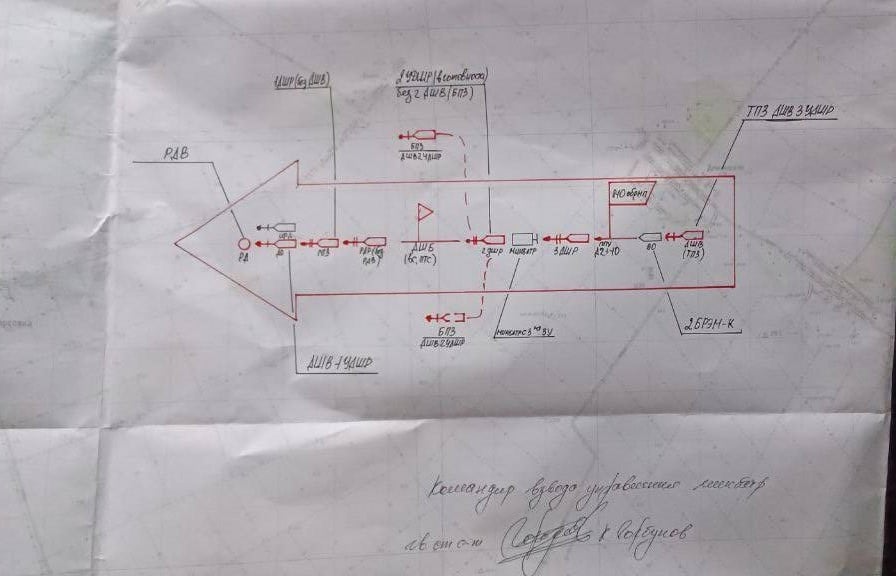 1ДШР (без ДШВ)
2 УДШР (в готовноси)
без 2 ДШВ (БПЗ)
ТПЗ ДШВ 3 УДШР
РДВ
БПЗ
ДШВ 2 УДШР
840 обрмп
РД
ДО
ГПЗ
ДШБ
2 ДШР
МИНБАТР
3 ДШР
ППУ
ВО
ДШВ
(ТПЗ)
БПЗ
ДШВ 2 УДШР
2 БРЭМ-К
ДШВ 1 УДШР
Командир взвода управления минбатр
гв ст с-т
К Горбунов